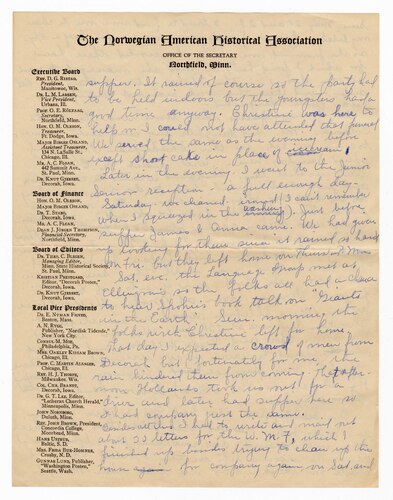 The Norwegian American Historical Association
OFFICE OF THE SECRETARY
Northfield, Minn.
Executive Board
REV. D. G. RISTAD,
President,
Manitowoc, Wis.
DR. L. M. LARSON,
Vice President,
Urbana, Ill.
PROF. O. E. RÖLVAAG,
Secretary,
Northfield, Minn.
HON. O. M. OLESON,
Treasurer,
Ft. Dodge, Iowa.
MAJOR BIRGER OSLAND,
Assistant Treasurer,
134 N. LaSalle St.,
Chicago, Ill.
MR. A. C. FLOAN,
442 Summit Ave.,
St. Paul, Minn.
DR. KNUT GJERSET,
Decorah, Iowa.
Board of Finance
HON. O. M. OLESON,
MAJOR BIRGER OSLAND,
DR. T. STABO,
Decorah, Iowa.
MR. A. C. FLOAN,
DEAN J. JØRGEN THOMPSON,
Financial Secretary,
Northfield, Minn.
Board of Editors
DR. THEO. C. BLEGEN,
Managing Editor,
Minn. State Historical Society,
St. Paul, Minn.
KRISTIAN PRESTGARD,
Editor, "Decorah Posten,"
Decorah, Iowa.
DR. KNUT GJERSET,
Decorah, Iowa.
Local Vice Presidents
Boston, Mass.
A. N. RYGG,
Publisher, "Nordisk Tidende,"
New York City.
CONSUL M. MOE,
Philadelphia, Pa.
Chicago, Ill.
Chicago, Ill.
REV. H. J. THORPE,
Milwaukee, Wis.
Decorah, Iowa.
DR. G. T. LEE, Editor,
"Lutheran Church Herald,"
Minneapolis, Minn.
JOHN NORDBERG,
Duluth, Minn.
REV. JOHN BROWN, President,
Concordia College,
Moorhead, Minn.
HANS USTRUD,
Baltic, S. D.
Crosby, N. D.
GUNNAR LUND, Publisher,
"Washington Posten,"
Seattle, Wash.
supper. It rained of course so the party had
to be held indoors but the youngsters had a
good time anyway. Christine was here to
help me could not have attended that funeral
We served the same as the evening before
except short cake in place of
Later in the evening I went to the Junior
Senior reception - a full enough day.
Saturday we cleaned, (I can't remember
when I squeezed in the ironing). Just before
supper James & Anna came. We had given
up looking for them since it rained so hard
on Fri. But they left home on them
Sat. eve. the Language Group met at
Ellingsons so the folks all had a chance
to hear book talk on "Giants
in the Earth". morning the
folks with Christine left for home.
That day I expected a crowd of men from
Decorah but fortunately for me, the
rain hindered them from coming. The after-
noon Hollands took us out for a
drive and later had supper here so
I had company just the same.
I had to write and mail out
about 55 letters for the W. M. F, which I
finished up besides trying to clean up the
house again for company again on Sat. and